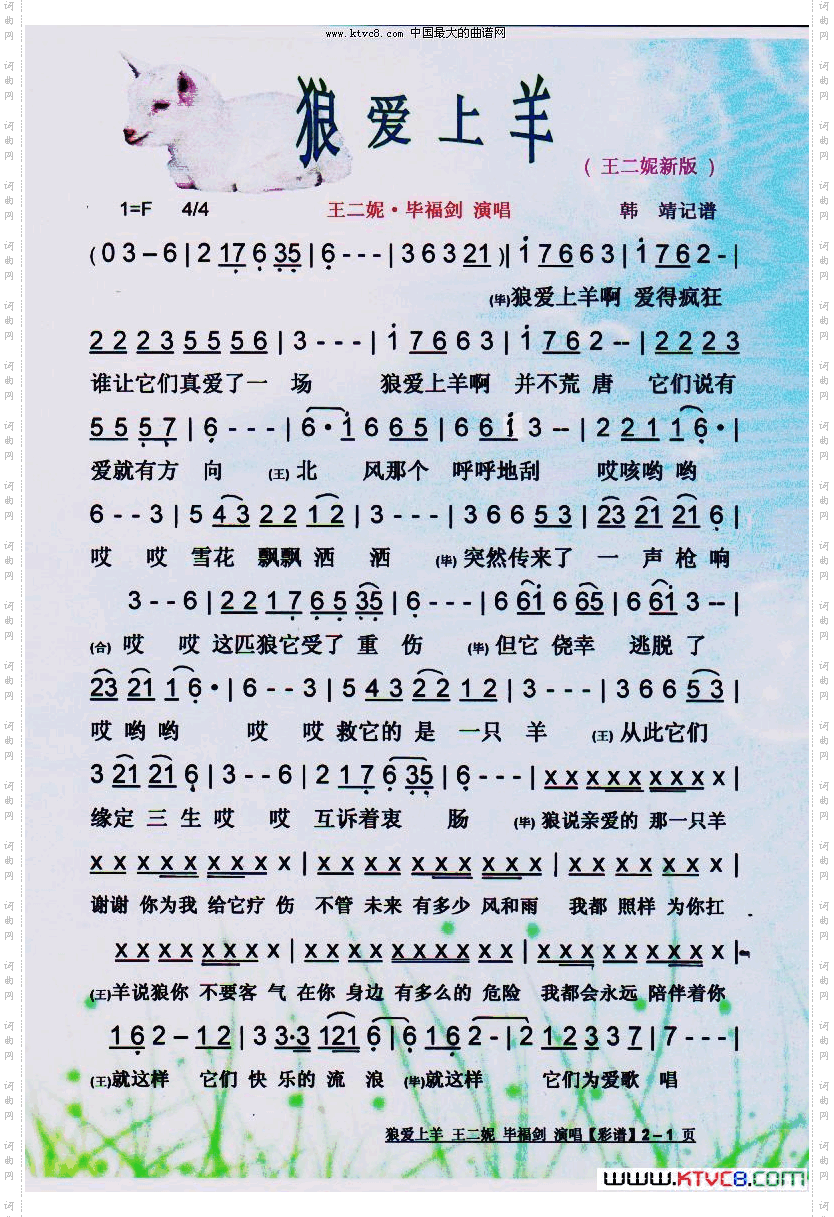 www.ktvc8.com 中国最大的曲谱网
狼爱上羊
( 王二妮新版 )
1=F 4/4 王二妮·毕福剑 演唱 韩 靖记谱
( 0 3 – 6 | 2 17 6 35 | 6 - - - | 3 6 3 21 )| 1 7 6 6 3 | 1 7 6 2 - |
(毕)狼爱上羊啊 爱得疯狂
2 2 2 3 5 5 5 6 | 3 - - - | 1 7 6 6 3 | 1 7 6 2 -- | 2 2 2 3
谁让它们真爱了一 场 狼爱上羊啊 并不荒 唐 它们说有
5 5 5 7 | 6 - - - | 6 · 1 6 6 5 | 6 6 1 3 -- | 2 2 1 1 6 · |
爱就有方 向 (王) 北 风那个 呼呼地刮 哎咳哟 哟
6 - - 3 | 5 4 3 2 2 1 2 | 3 - - - | 3 6 6 5 3 | 23 21 21 6 |
哎 哎 雪花 飘飘 洒 洒 (毕) 突然传来了 一 声 枪 响
3 - - 6 | 2 2 1 7 6 5 35 | 6 - - - | 6 61 6 65 | 6 61 3 -- |
(合) 哎 哎 这匹狼它受了 重 伤 (毕) 但它 侥幸 逃脱 了
23 21 1 6 · | 6 - - 3 | 5 4 3 2 2 1 2 | 3 - - - | 3 6 6 5 3 |
哎 哟 哟 哎 哎 救它的 是 一只 羊 (王) 从此它们
3 21 21 6 | 3 - - 6 | 2 1 7 6 35 | 6 - - - | x x x x x x x x |
缘定 三 生 哎 哎 互诉着衷 肠 (毕) 狼说亲爱的 那一只羊
x x x x x x x x | x x x x x x x x x x | x x x x x x x |
谢谢 你为我 给它疗 伤 不管 未来 有多少 风和雨 我都 照样 为你扛
x x x x x x x x | x x x x x x x x x x | x x x x x x x x x |
(王)羊说狼你 不要客 气 在你 身边 有多么的 危险 我都会永远 陪伴着你
1 6 2 – 1 2 | 3 3·3 121 6 | 6 1 6 2 - | 2 1 2 3 3 7 | 7 - - - |
(王)就这样 它们 快 乐的 流 浪 (毕)就这样 它们为爱歌 唱
狼爱上羊 王二妮 毕福剑 演唱【彩谱】2－1 页
www.KTVC8.com